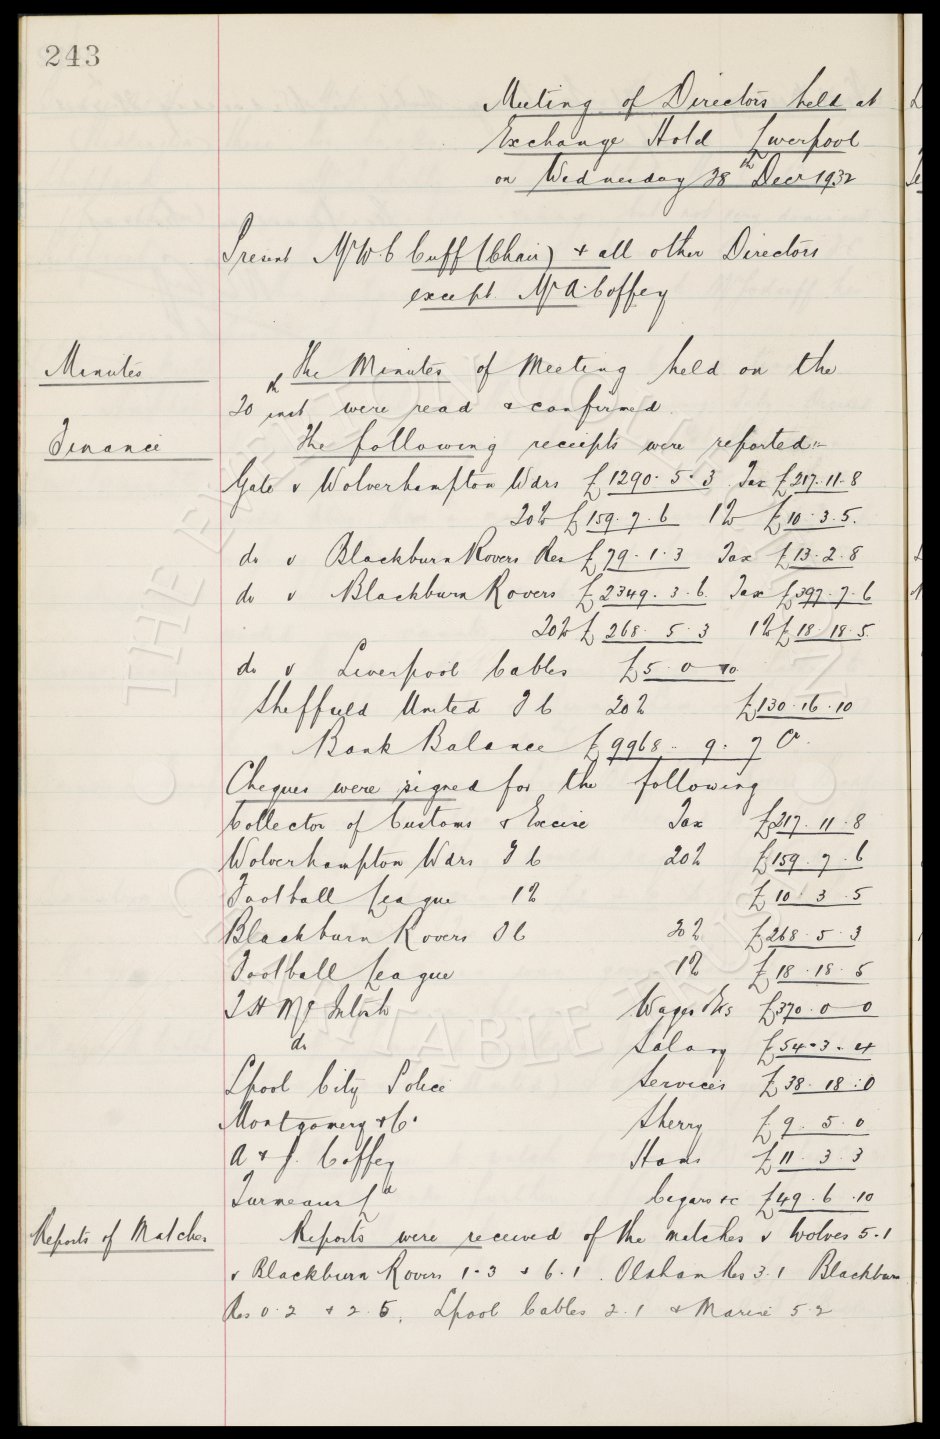 243
Meeting of Directors held at
Exchange Hotel Liverpool
on Wednesday 28th Decr 1932
Present Mr W. C Cuff (Chair) & all other Directors
except Mr A. Coffey
Minutes
The Minutes of Meeting held on the
20th inst were read & confirmed.
Finance
The following receipts were reported:-
Gate v Wolverhampton Wdrs £1290. 5. 3 Tax £217. 11. 8
20% £159. 7. 6 1% £10. 3. 5.
do v Blackburn Rovers Res £79. 1. 3 Tax £13. 2. 8
do v Blackburn Rovers £2349. 3. 6. Tax £397. 7. 6
20% £268. 5. 3 1% £18. 18. 5.
do v Liverpool Cables £5. 0. 10
Sheffield United F C 20% £130. 16. 10
Bank Balance £9968. 9. 7 Cr.
Cheques were signed for the following
Collector of Customs & Excise Tax £217. 11. 8
Wolverhampton Wdrs F C 20% £159. 7. 6
Football League 1% £10. 3. 5
Blackburn Rovers F C 20% £268. 5. 3
Football League 1% £18. 18. 5
T H McIntosh Wages £370. 0. 0
do Salary £54. 3. 4
Lpool City Police Services £38. 18. 0
Montgomery & Co. Sherry £9. 5. 0
A & J. Coffey Hams £11. 3. 3
Turmeaus Ld Cigars &c £49. 6. 10
Reports of Matches
Reports were received of the matches v Wolves 5. 1
v Blackburn Rovers 1. 3 & 6. 1. Oldham Res 3. 1 Blackburn
Res 0. 2 & 2. 5. Lpool Cables 2. 1 & Marine 5. 2